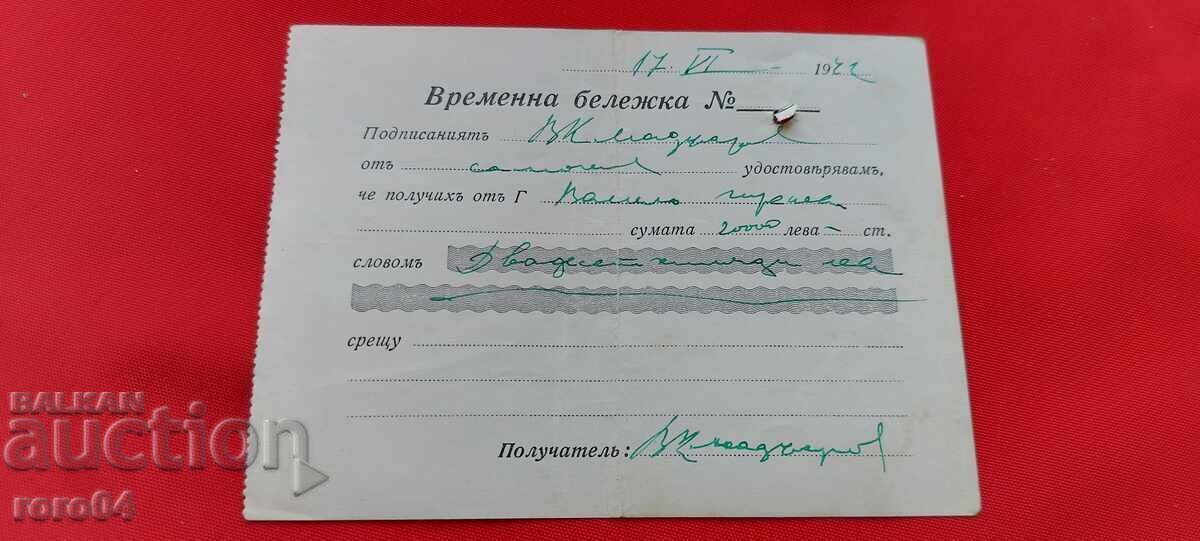 17. VI 1942
Временна бележка №
Подписаниятъ ВКМаджаров
отъ удостовѣрявамъ,
че получихъ отъ Г
сумата 20000 лева – ст.
словомъ Двадесет хиляди лева
срещу
Получатель: ВКМаджаров
BALKAN
auction
roro04